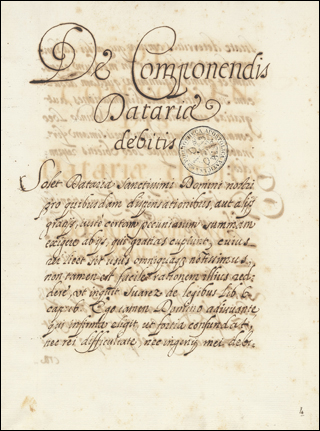 De Componendis
Datariæ
debitis
Solet Dataria sanctissimi Domini nostri
pro quibusdam dispensationibus, aut alijs
gratijs, certam pecuniarum summam
exigere ab ijs, qui gratias cupiunt, cuius
rei licet sit usus omnibus notissimus,
non tamen est facile rationem illius red-
dere, ut inquit Suarez de legibus lib. 6
cap. Ego tamen Domino adiuvante
qui infirma eligit, ut fortia confundat,
nec rei difficultate nec ingenij mei debi-
4